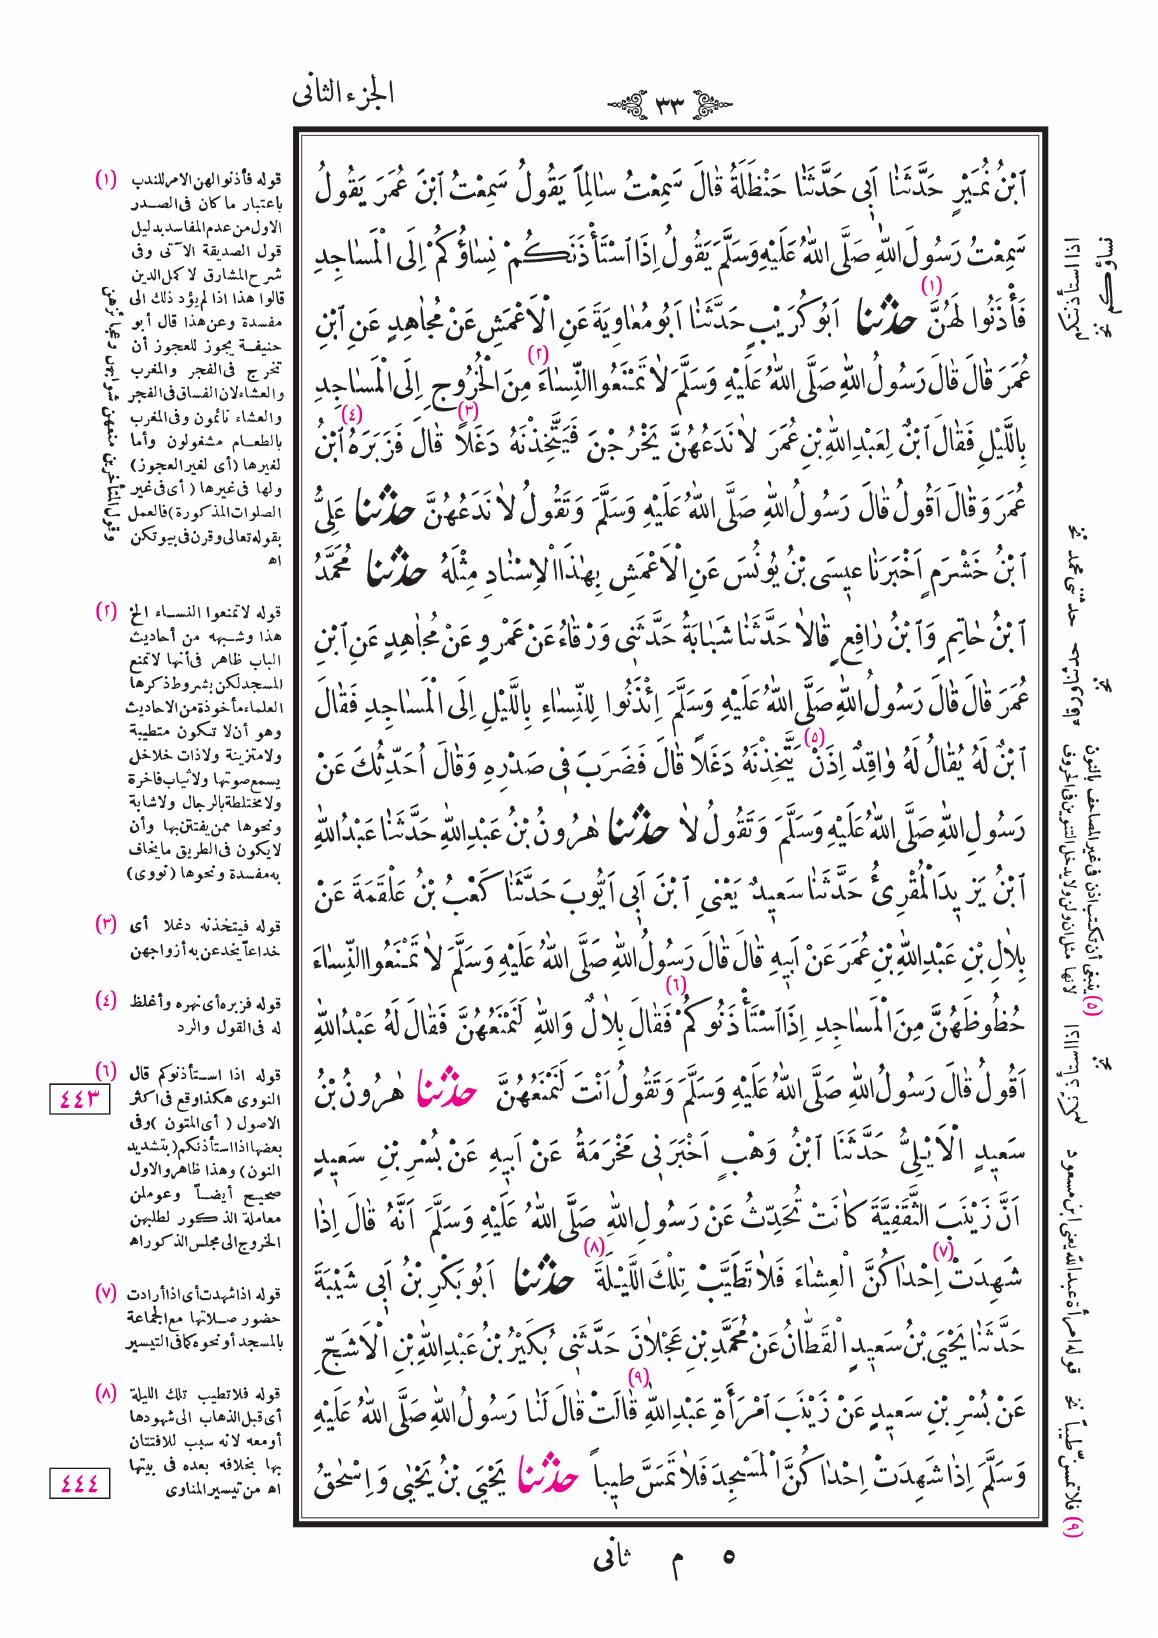 ٣٣
الجزء الثانى
ٱبْنُ نُمَيْرٍ حَدَّثَنَا اَبِى حَدَّثَنَا حَنْظَلَةُ قَالَ سَمِعْتُ سَالِماً يَقُولُ سَمِعْتُ ٱبْنَ عُمَرَ يَقُولُ
سَمِعْتُ رَسُولَ اللهِ صَلَّى اللهُ عَلَيْهِ وَسَلَّمَ يَقُولُ اِذَا ٱسْتَأْذَنَكُمْ نِسَاؤُكُمْ اِلَى الْمَسَاجِدِ
فَأْذَنُوا لَهُنَّ (١) حَدَّثَنَا اَبُو كُرَيْبٍ حَدَّثَنَا اَبُو مُعَاوِيَةَ عَنِ الْاَعْمَشِ عَنْ مُجَاهِدٍ عَنِ ٱبْنِ
عُمَرَ قَالَ قَالَ رَسُولُ اللهِ صَلَّى اللهُ عَلَيْهِ وَسَلَّمَ لَا تَمْنَعُوا النِّسَاءَ (٢) مِنَ الْخُرُوجِ اِلَى الْمَسَاجِدِ
بِاللَّيْلِ فَقَالَ ٱبْنٌ لِعَبْدِ اللهِ بْنِ عُمَرَ لَا نَدَعُهُنَّ يَخْرُجْنَ فَيَتَّخِذْنَهُ دَغَلاً (٣) قَالَ فَزَبَرَهُ (٤) ٱبْنُ
عُمَرَ وَقَالَ اَقُولُ قَالَ رَسُولُ اللهِ صَلَّى اللهُ عَلَيْهِ وَسَلَّمَ وَتَقُولُ لَا نَدَعُهُنَّ حَدَّثَنَا عَلِىُّ
ٱبْنُ خَشْرَمٍ اَخْبَرَنَا عِيسَى بْنُ يُونُسَ عَنِ الْاَعْمَشِ بِهٰذَا الْاِسْنَادِ مِثْلَهُ حَدَّثَنَا مُحَمَّدُ
ٱبْنُ حَاتِمٍ وَٱبْنُ رَافِعٍ قَالَا حَدَّثَنَا شَبَابَةُ حَدَّثَنِى وَرْقَاءُ عَنْ عَمْرٍو عَنْ مُجَاهِدٍ عَنِ ٱبْنِ
عُمَرَ قَالَ قَالَ رَسُولُ اللهِ صَلَّى اللهُ عَلَيْهِ وَسَلَّمَ اِئْذَنُوا لِلنِّسَاءِ بِاللَّيْلِ اِلَى الْمَسَاجِدِ فَقَالَ
ٱبْنٌ لَهُ يُقَالُ لَهُ وَاقِدٌ اِذَنْ (٥) يَتَّخِذْنَهُ دَغَلاً قَالَ فَضَرَبَ فِى صَدْرِهِ وَقَالَ اُحَدِّثُكَ عَنْ
رَسُولِ اللهِ صَلَّى اللهُ عَلَيْهِ وَسَلَّمَ وَتَقُولُ لَا حَدَّثَنَا هٰرُونُ بْنُ عَبْدِ اللهِ حَدَّثَنَا عَبْدُ اللهِ
ٱبْنُ يَزِيدَ الْمُقْرِئُ حَدَّثَنَا سَعِيدٌ يَعْنِى ٱبْنَ اَبِى اَيُّوبَ حَدَّثَنَا كَعْبُ بْنُ عَلْقَمَةَ عَنْ
بِلَالِ بْنِ عَبْدِ اللهِ بْنِ عُمَرَ عَنْ اَبِيهِ قَالَ قَالَ رَسُولُ اللهِ صَلَّى اللهُ عَلَيْهِ وَسَلَّمَ لَا تَمْنَعُوا النِّسَاءَ
حُظُوظَهُنَّ مِنَ الْمَسَاجِدِ اِذَا ٱسْتَأْذَنُوكُمْ (٦) فَقَالَ بِلَالٌ وَاللهِ لَنَمْنَعُهُنَّ فَقَالَ لَهُ عَبْدُ اللهِ
اَقُولُ قَالَ رَسُولُ اللهِ صَلَّى اللهُ عَلَيْهِ وَسَلَّمَ وَتَقُولُ اَنْتَ لَنَمْنَعُهُنَّ حَدَّثَنَا هٰرُونُ بْنُ
سَعِيدٍ الْاَيْلِىُّ حَدَّثَنَا ٱبْنُ وَهْبٍ اَخْبَرَنِى مَخْرَمَةُ عَنْ اَبِيهِ عَنْ بُسْرِ بْنِ سَعِيدٍ
اَنَّ زَيْنَبَ الثَّقَفِيَّةَ كَانَتْ تُحَدِّثُ عَنْ رَسُولِ اللهِ صَلَّى اللهُ عَلَيْهِ وَسَلَّمَ اَنَّهُ قَالَ اِذَا
شَهِدَتْ (٧) اِحْدَاكُنَّ الْعِشَاءَ فَلَا تَطَيَّبْ تِلْكَ اللَّيْلَةَ (٨) حَدَّثَنَا اَبُو بَكْرِ بْنُ اَبِى شَيْبَةَ
حَدَّثَنَا يَحْيَى بْنُ سَعِيدٍ الْقَطَّانُ عَنْ مُحَمَّدِ بْنِ عَجْلَانَ حَدَّثَنِى بُكَيْرُ بْنُ عَبْدِ اللهِ بْنِ الْاَشَجِّ
عَنْ بُسْرِ بْنِ سَعِيدٍ عَنْ زَيْنَبَ ٱمْرَأَةِ عَبْدِ اللهِ (٩) قَالَتْ قَالَ لَنَا رَسُولُ اللهِ صَلَّى اللهُ عَلَيْهِ
وَسَلَّمَ اِذَا شَهِدَتْ اِحْدَاكُنَّ الْمَسْجِدَ فَلَا تَمَسَّ طِيباً حَدَّثَنَا يَحْيَى بْنُ يَحْيٰى وَاِسْحٰقُ
(١) قوله فأذنوا لهن الامر للندب
باعتبار ما كان فى الصدر
الاول من عدم المفاسد بدليل
قول الصديقة الآتى وفى
شرح المشارق لاكمل الدين
قالوا هذا اذا لم يؤد ذلك الى
مفسدة وعن هذا قال أبو
حنيفة يجوز للعجوز أن
تخرج فى الفجر والمغرب
والعشاء لان الفساق فى الفجر
والعشاء نائمون وفى المغرب
بالطعام مشغولون وأما
لغيرها (أى لغير العجوز)
ولها فى غيرها (أى فى غير
الصلوات المذكورة) فالعمل
بقوله تعالى وقرن فى بيوتكن
اه
(٢) قوله لا تمنعوا النساء الخ
هذا وشبهه من أحاديث
الباب ظاهر فى أنها لا تمنع
المسجد لكن بشروط ذكرها
العلماء مأخوذة من الاحاديث
وهو أن لا تكون متطيبة
ولا متزينة ولا ذات خلاخل
يسمع صوتها ولا ثياب فاخرة
ولا مختلطة بالرجال ولا شابة
ونحوها ممن يفتتن بها وأن
لا يكون فى الطريق ما يخاف
به مفسدة ونحوها (نووى)
(٣) قوله فيتخذنه دغلا أى
خداعاً يخدعن به أزواجهن
(٤) قوله فزبره أى نهره وأغلظ
له فى القول والرد
(٦) قوله اذا استأذنوكم قال
النووى هكذا وقع فى اكثر
الاصول (أى المتون) وفى
بعضها اذا استأذنكم (بتشديد
النون) وهذا ظاهر والاول
صحيح أيضاً وعوملن
معاملة الذكور لطلبهن
الخروج الى مجلس الذكور اه
٤٤٣
(٧) قوله اذا شهدت أى اذا أرادت
حضور صلاتها مع الجماعة
بالمسجد أو نحوه كما فى التيسير
(٨) قوله فلا تطيب تلك الليلة
أى قبل الذهاب الى شهودها
أو معه لانه سبب للافتتان
بها بخلافه بعده فى بيتها
اه من تيسير المناوى
٤٤٤
اذا استأذنكم
نساؤكم نخ
حدثنى محمد نخ
اذا استأذنكم نخ
(٥) ينبغى أن تكتب اذن فى غير المصاحف بالنون
لانها مثل ان ولن ولا يدخل التنوين فى الحروف
قوله امرأة عبد الله يعنى ابن مسعود
(٩) فلا تمسّ طيباً نخ
٥ م ثانى